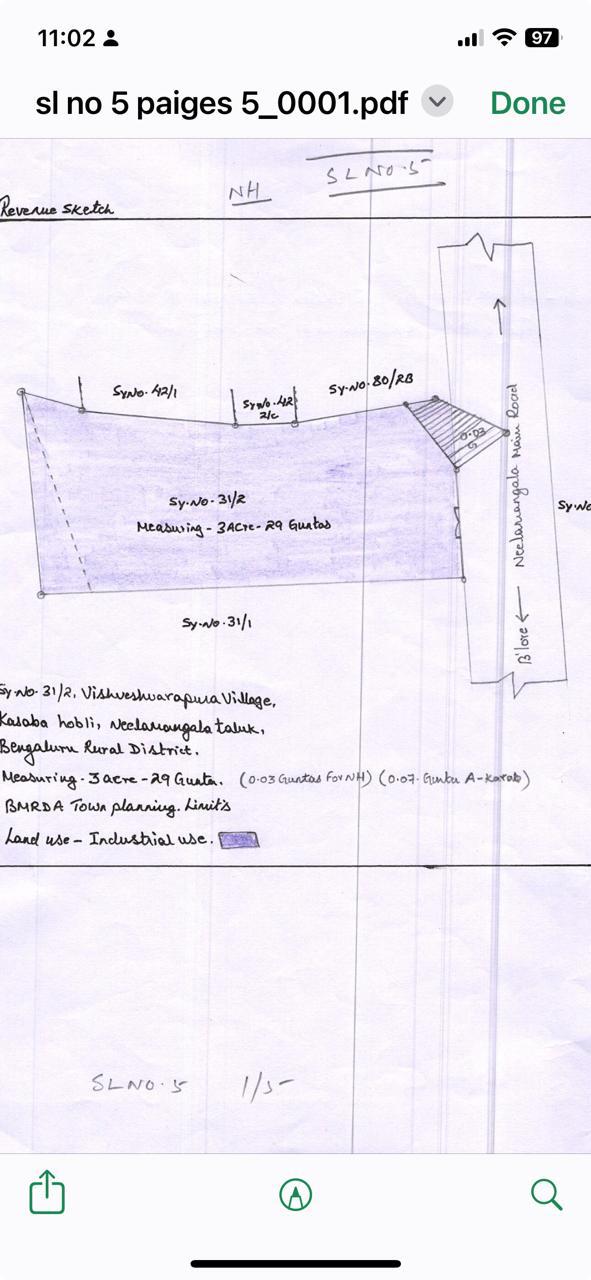 11:02
97
sl no 5 paiges 5_0001.pdf
Done
SL NO.5
NH
Revenue Sketch
Sy No. 42/1
Sy No. 42
2/c
Sy.No. 80/RB
0.03
G
Neelamangala Main Road
B'lore
Sy.No. 31/2
Measuring - 3 Acre - 29 Guntas
Sy No
Sy.No. 31/1
Sy.No. 31/2, Vishveshwarapura Village,
Kasaba hobli, Neelamangala taluk,
Bengaluru Rural District.
Measuring. 3 acre - 29 Gunta. (0.03 Guntas For NH) (0.07. Gunta A-Karab)
BMRDA Town planning. Limits
Land use - Industrial use.
SL NO.5 1/5